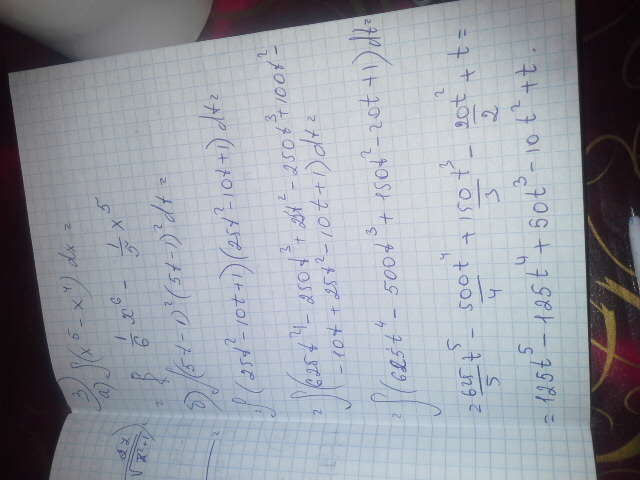 3)
a) ∫(x⁵ - x⁴) dx =
= 1/6 x⁶ - 1/5 x⁵
б) ∫(5t-1)²(5t-1)² dt =
= ∫(25t²-10t+1)(25t²-10t+1) dt =
= ∫(625t⁴ - 250t³ + 25t² - 250t³ + 100t² -
- 10t + 25t² - 10t + 1) dt =
= ∫(625t⁴ - 500t³ + 150t² - 20t + 1) dt =
= 625t⁵/5 - 500t⁴/4 + 150t³/3 - 20t²/2 + t =
= 125t⁵ - 125t⁴ + 50t³ - 10t² + t.